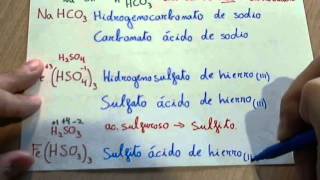 NaHCO3 Hidrogenocarbonato de sodio
Carbonato ácido de sodio
H2SO4
Fe+3(HSO4)3 Hidrogenosulfato de hierro (III)
Sulfato ácido de hierro (III)
+1+4-2
H2SO3 ac. sulfuroso → Sulfito.
Fe(HSO3)3 Sulfito ácido de hierro (II